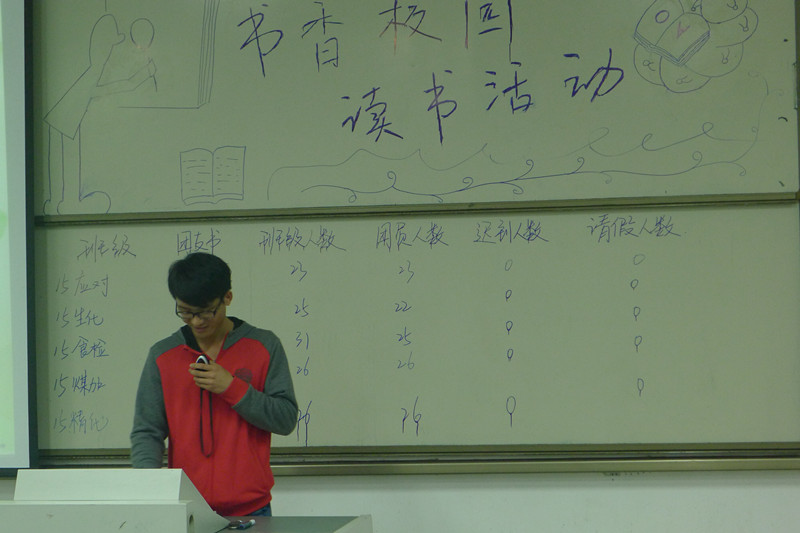 书香校园
读书活动
班级 团支书 班级人数 团员人数 迟到人数 请假人数
15应对 23 23 0 0
15生化 25 22 0 0
15食检 31 25 0 0
15煤加 26 26 0 0
15精化 0 0